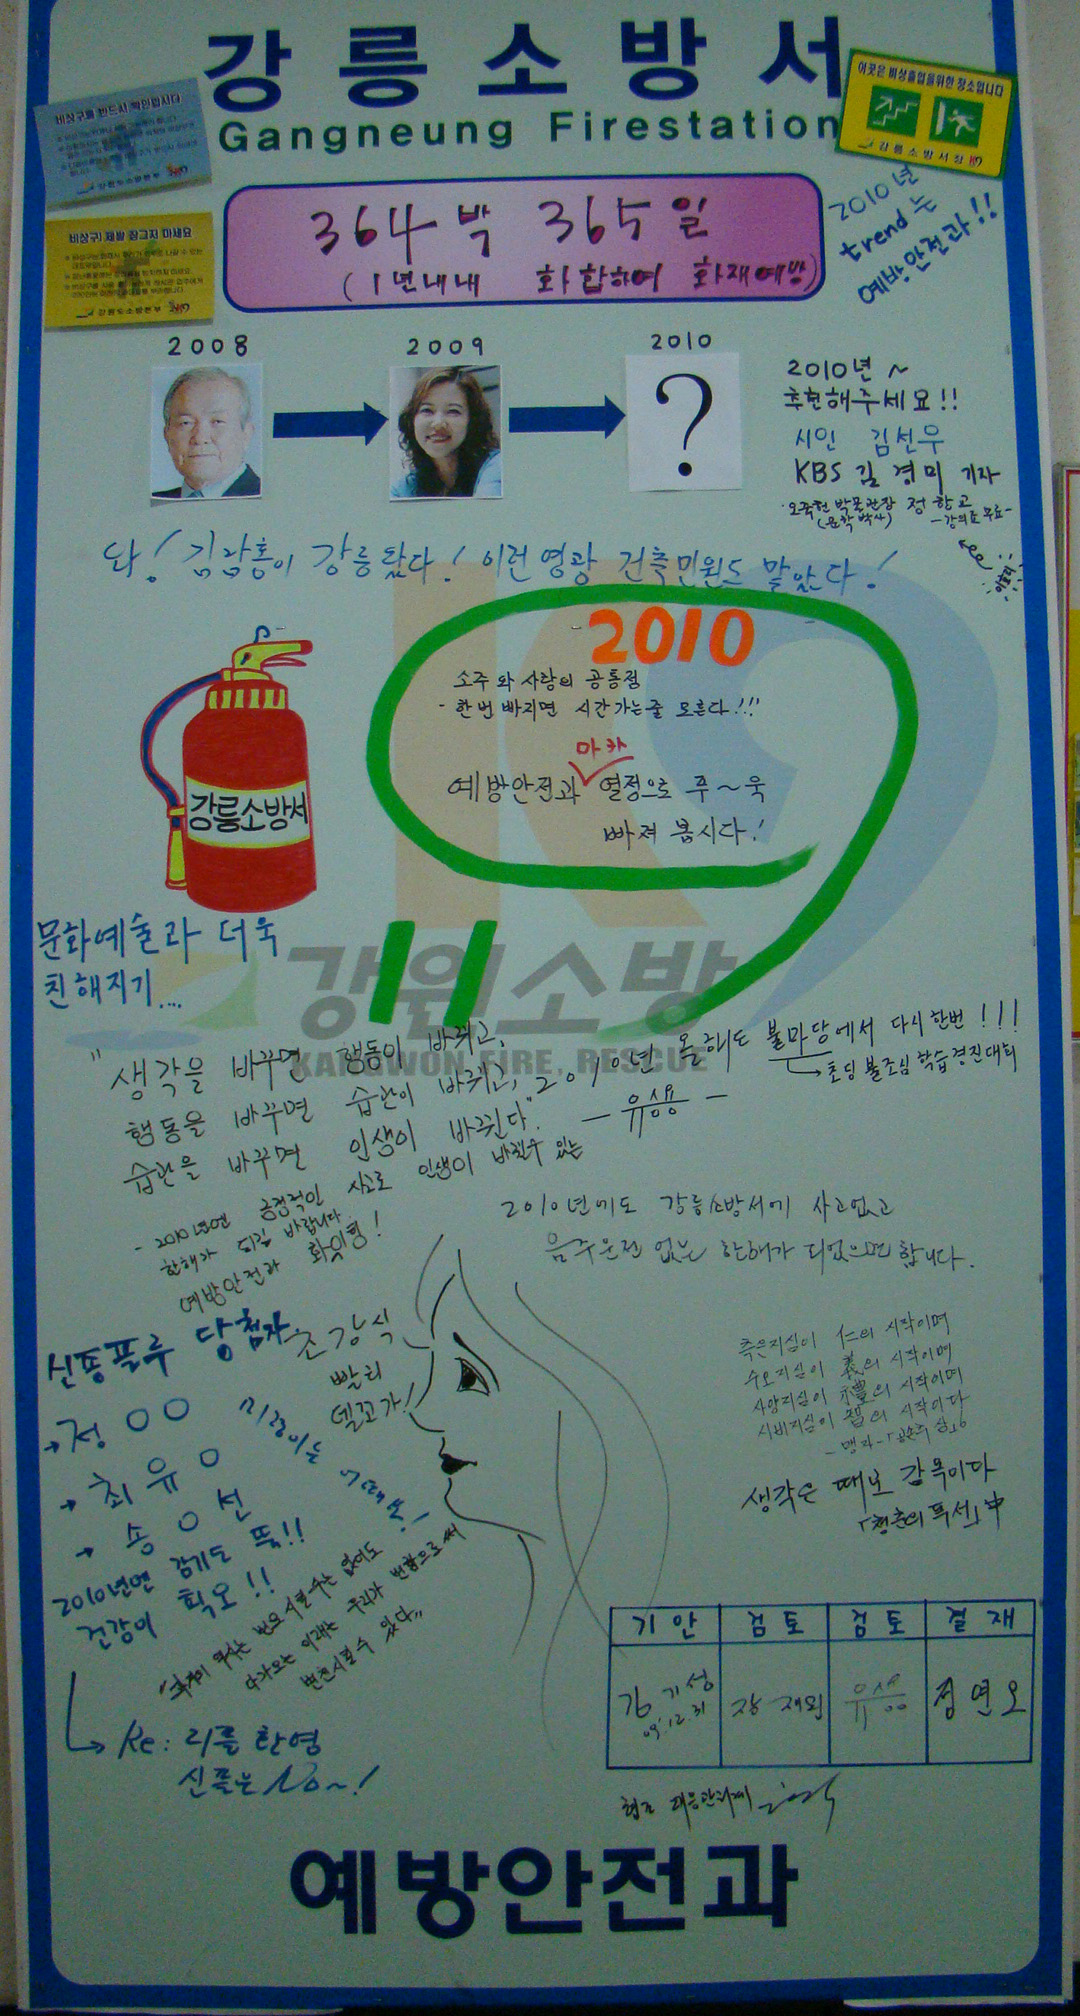 강릉소방서
Gangneung Firestation
비상구를 반드시 확인합시다
이곳은 비상출입을위한 장소입니다
강릉소방서장
비상구! 제발 잠그지 마세요
강원도소방본부
364박 365일
(1년내내 화합하여 화재예방)
2010년
trend는
예방안전과!!
2008
2009
2010
?
2010년 ~
추천해주세요!!
시인 김선우
KBS 김경미 기자
오죽헌박물관장 정항교
(문학박사) -강의료 무료-
와! 김람통이 강릉왔다! 이런영광 건축민원도 말았다!
2010
소주와 사랑의 공통점
- 한번 빠지면 시간가는줄 모른다!!!
마카
예방안전과 열정으로 주~욱
빠져 봅시다!
강릉소방서
문화예술과 더욱
친해지기....
강원소방
KANGWON FIRE, RESCUE
"생각을 바꾸면 행동이 바뀌고,
행동을 바꾸면 습관이 바뀌고,
습관을 바꾸면 인생이 바뀐다."
- 2010년엔 긍정적인 사고로 인생이 바뀔수 있는
한해가 되길 바랍니다.
예방안전과 화이팅!
2010년 올해도 불마당에서 다시한번!!!
초딩 불조심 학습경진대회
- 유상용 -
2010년에도 강릉소방서에 사고없고
음주운전 없는 한해가 되었으면 합니다.
신종플루 당첨자
→ 정○○
→ 최유○
→ 송○선
2010년엔 감기도 뚝!!
건강이 최오!!
조강식
빨리
델꼬가!
다가오는 미래는 우리가 변함으로써
변천시킬수 있다"
측은지심이 仁의 시작이며
수오지심이 義의 시작이며
사양지심이 禮의 시작이며
시비지심이 智의 시작이다
- 맹자-「공손추 상」
생각은 때로 감옥이다
「청춘의 독서」中
Re: 리플 환영
신플은 No~!
기안 검토 검토 결재
김기성 장재외 유상용 정연오
09.12.31
협조 대응관리과
예방안전과